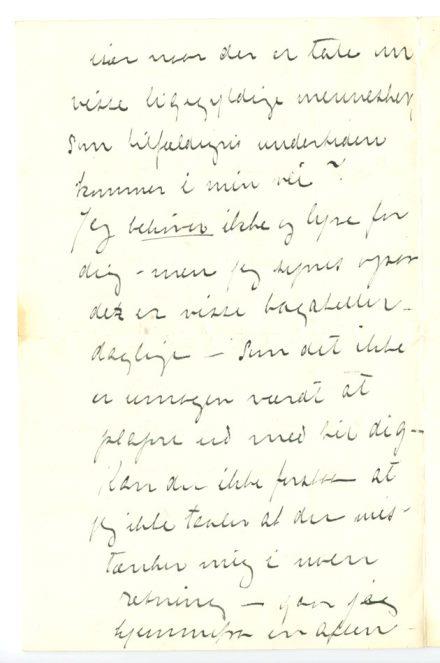 især naar der er tale om
visse ligegyldige mennesker,
som tilfældigvis undertiden
kommer i min vei ?
Jeg behøver ikke og lyve for
dig - men jeg synes ogsaa
der er visse bagateller -
daglige - som det ikke
er umagen værdt at
plapre ud med til dig -
Kan du ikke forstaa at
jeg ikke taaler at du mis-
tænker mig i noen
retning - gaar jeg
hjemmefra en aften -